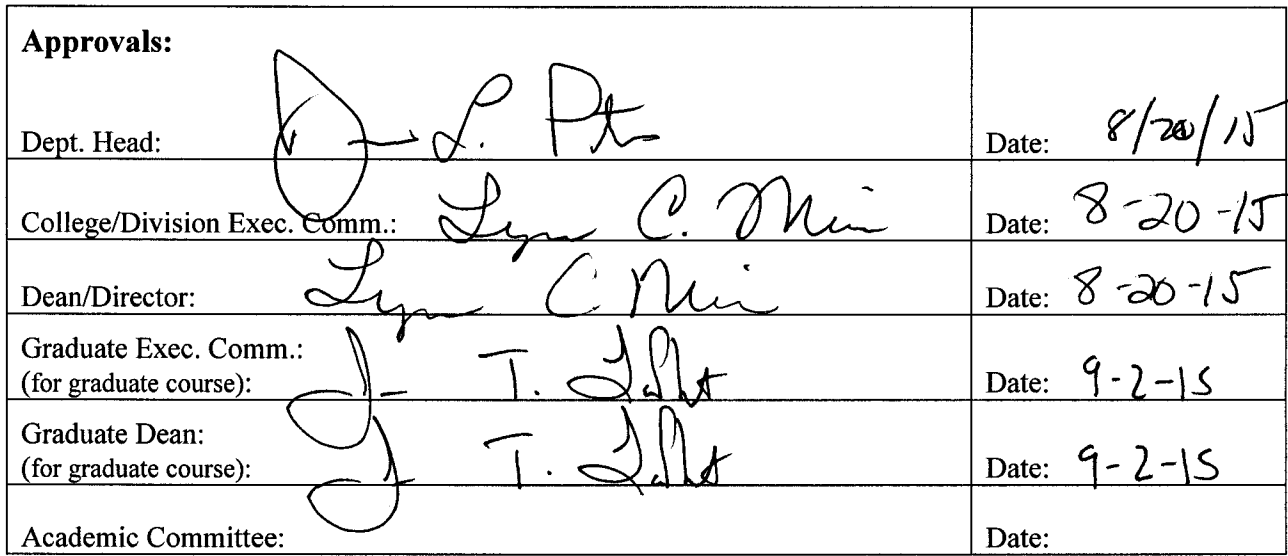 Approvals:
Dept. Head: L. Date: 8/20/15
College/Division Exec. Comm.: C. Date: 8-20-15
Dean/Director: C Date: 8-20-15
Graduate Exec. Comm.:
(for graduate course): T. Date: 9-2-15
Graduate Dean:
(for graduate course): T. Date: 9-2-15
Academic Committee: Date: